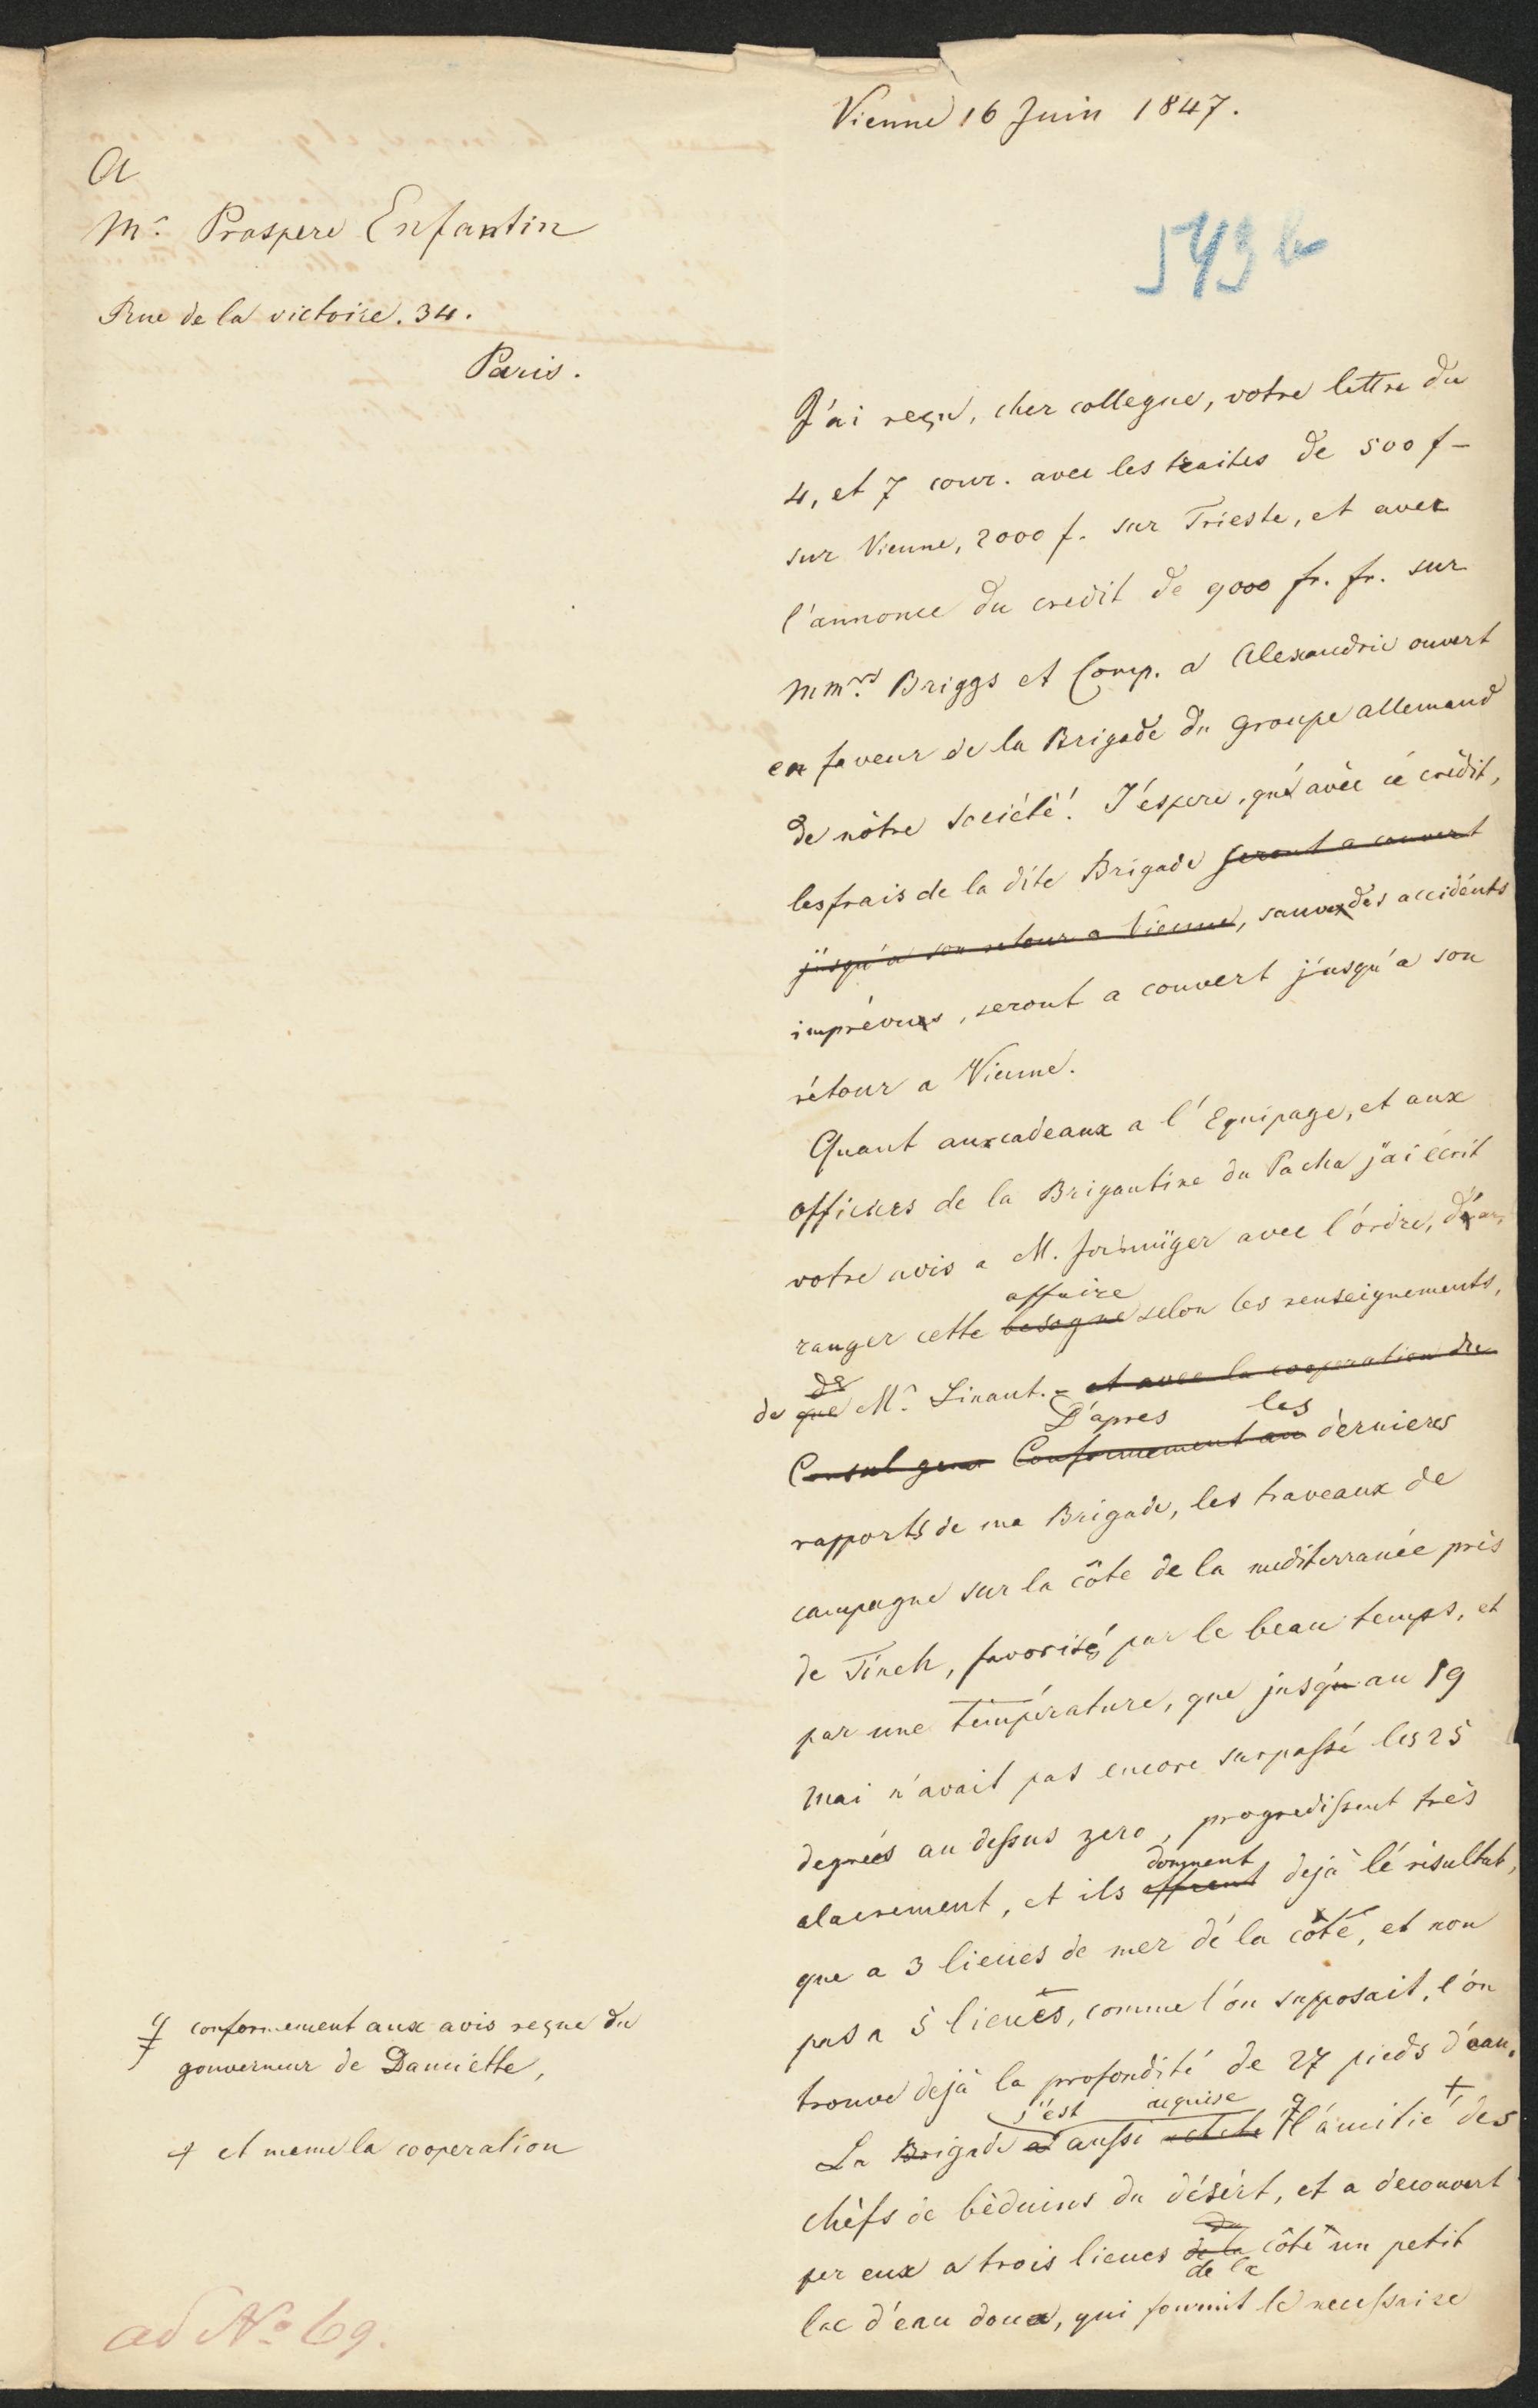 Vienne 16 Juin 1847.
A
Mr. Prospere Enfantin
Rue de la victoire. 34.
Paris.
543 b
J'ai reçu, cher collegue, votre lettre du
4, et 7 cour. avec les traites de 500 f –
sur Vienne, 2000 f. sur Trieste, et avec
l'annonce du credit de 9000 fr. fr. sur
Mmrs Briggs et Comp. a Alexandrie ouvert
en faveur de la Brigade du groupe allemand
de nôtre société! J'éspere, qué avéc cé crédit,
les frais de la dite Brigade seront a couvert
jusqu'a son retour a Vienne, sauve des accidénts
imprévues, seront a couvert jusqu'a son
rétour a Vienne.
Quant aux cadeaux a l'Equipage, et aux
officiers de la Brigantine du Pacha j'ai écrit
votre avis a M. avec l'órdre, d'ar,
affaire
ranger cette besogne selon les renseignements,
de
de que Mr. Linant. – et avec la cooperation du
D'apres les
Consul gene Conformement au dernieres
rapports de ma Brigade, les traveaux de
campagne sur la côte de la mediterranée près
de Tineh, favorisé par le beau temps, et
par une température, que jusqu'au 19
Mai n'avait pas encore surpassé les 25
degreés au dessus zero, progredissent très
donnent
alacrement, et ils offrent dejà lé résultat,
que a 3 lieues de mer dé la côté, et non
pas a 5 lieues, comme l'ón supposait, l'ón
trouve dejà la profondité de 27 pieds d'éau.
s'est aquise
La Brigade a aussi l'ámitié + des
chéfs de béduins du désért, et a decouvert
per eux a trois lieues de la côte un petit
de la
lac d'eau douce, qui fournit le necessaire
conformement aux avis reçue du
gouverneur de Damiette,
+ et meme la cooperation
ad No 69.